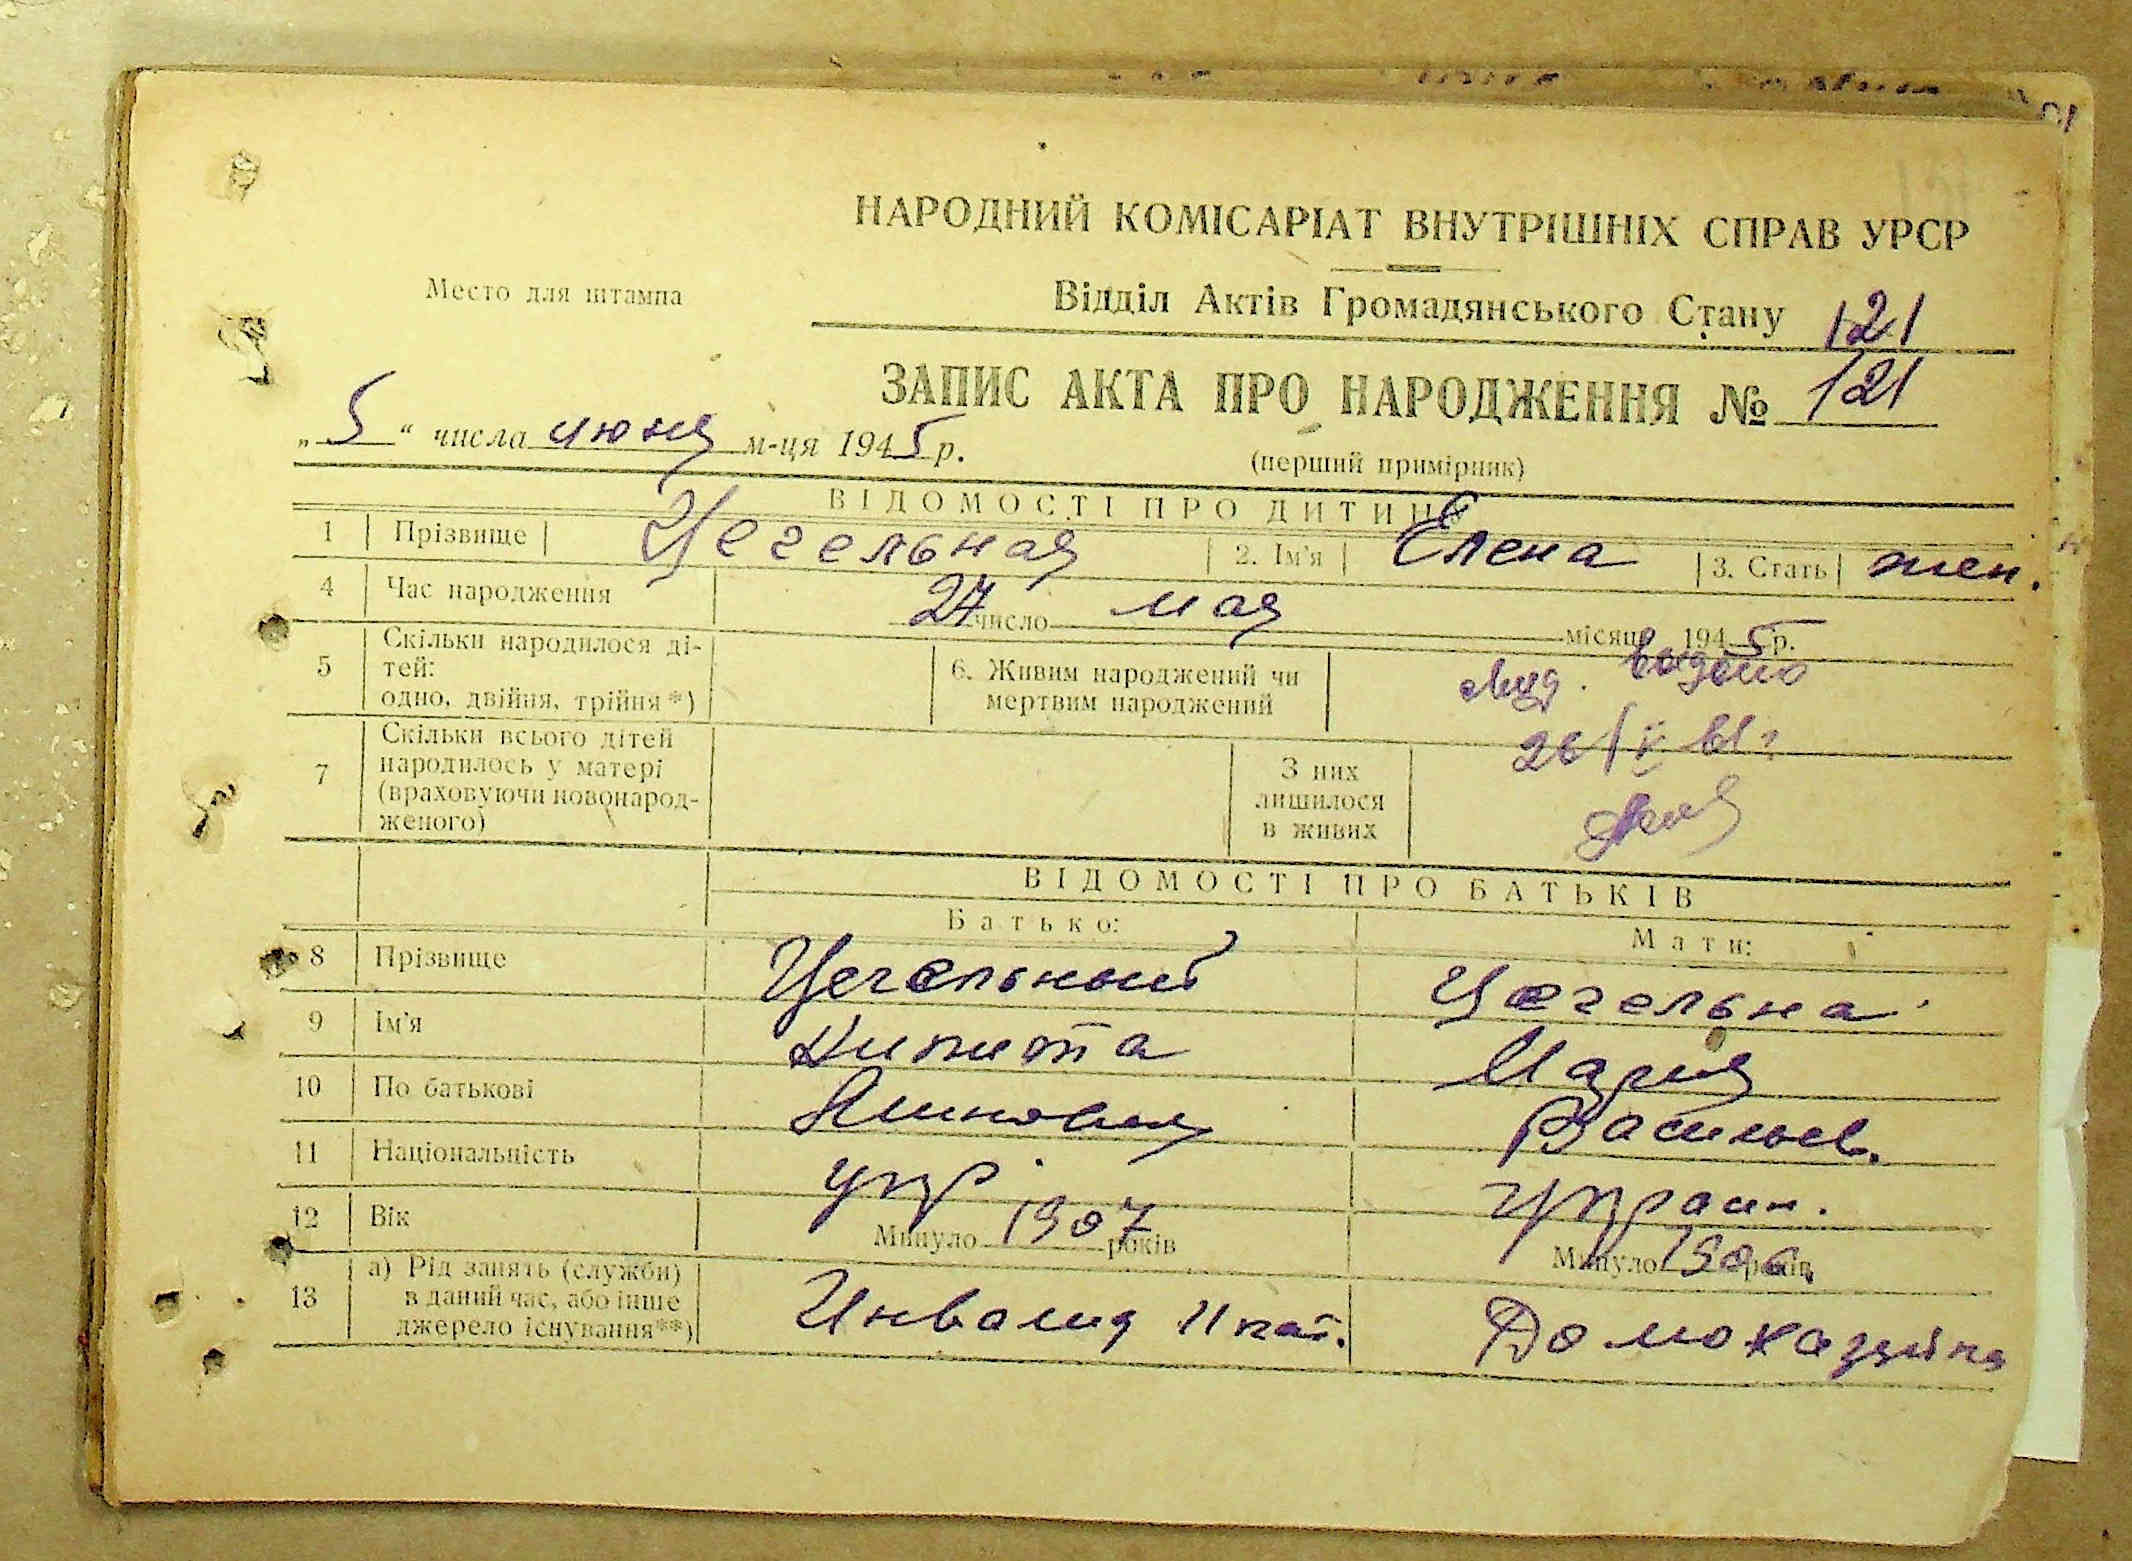 НАРОДНИЙ КОМІСАРІАТ ВНУТРІШНІХ СПРАВ УРСР
Место для штампа
Відділ Актів Громадянського Стану 121
ЗАПИС АКТА ПРО НАРОДЖЕННЯ № 121
„ 5 “ числа июня м-ця 1945 р.
(перший примірник)
ВІДОМОСТІ ПРО ДИТИНУ
1 Прізвище Цегельная 2. Ім'я Елена 3. Стать жен.
4 Час народження 27 число мая місяця 1945 р.
5 Скільки народилося ді-
тей:
одно, двійня, трійня*)
6. Живим народжений чи
мертвим народжений
выдано
7 Скільки всього дітей
народилось у матері
(враховуючи новонарод-
женого)
З них
лишилося
в живих
ВІДОМОСТІ ПРО БАТЬКІВ
Батько: Мати:
8 Прізвище Цегельный Цегельна
9 Ім'я Никита Мария
10 По батькові Васильев.
11 Національність укр. украин.
12 Вік Минуло 1907 років Минуло 1906 років
13 а) Рід занять (служби)
в даний час, або інше
джерело існування**)
Инвалид II кат. Домохазяйка